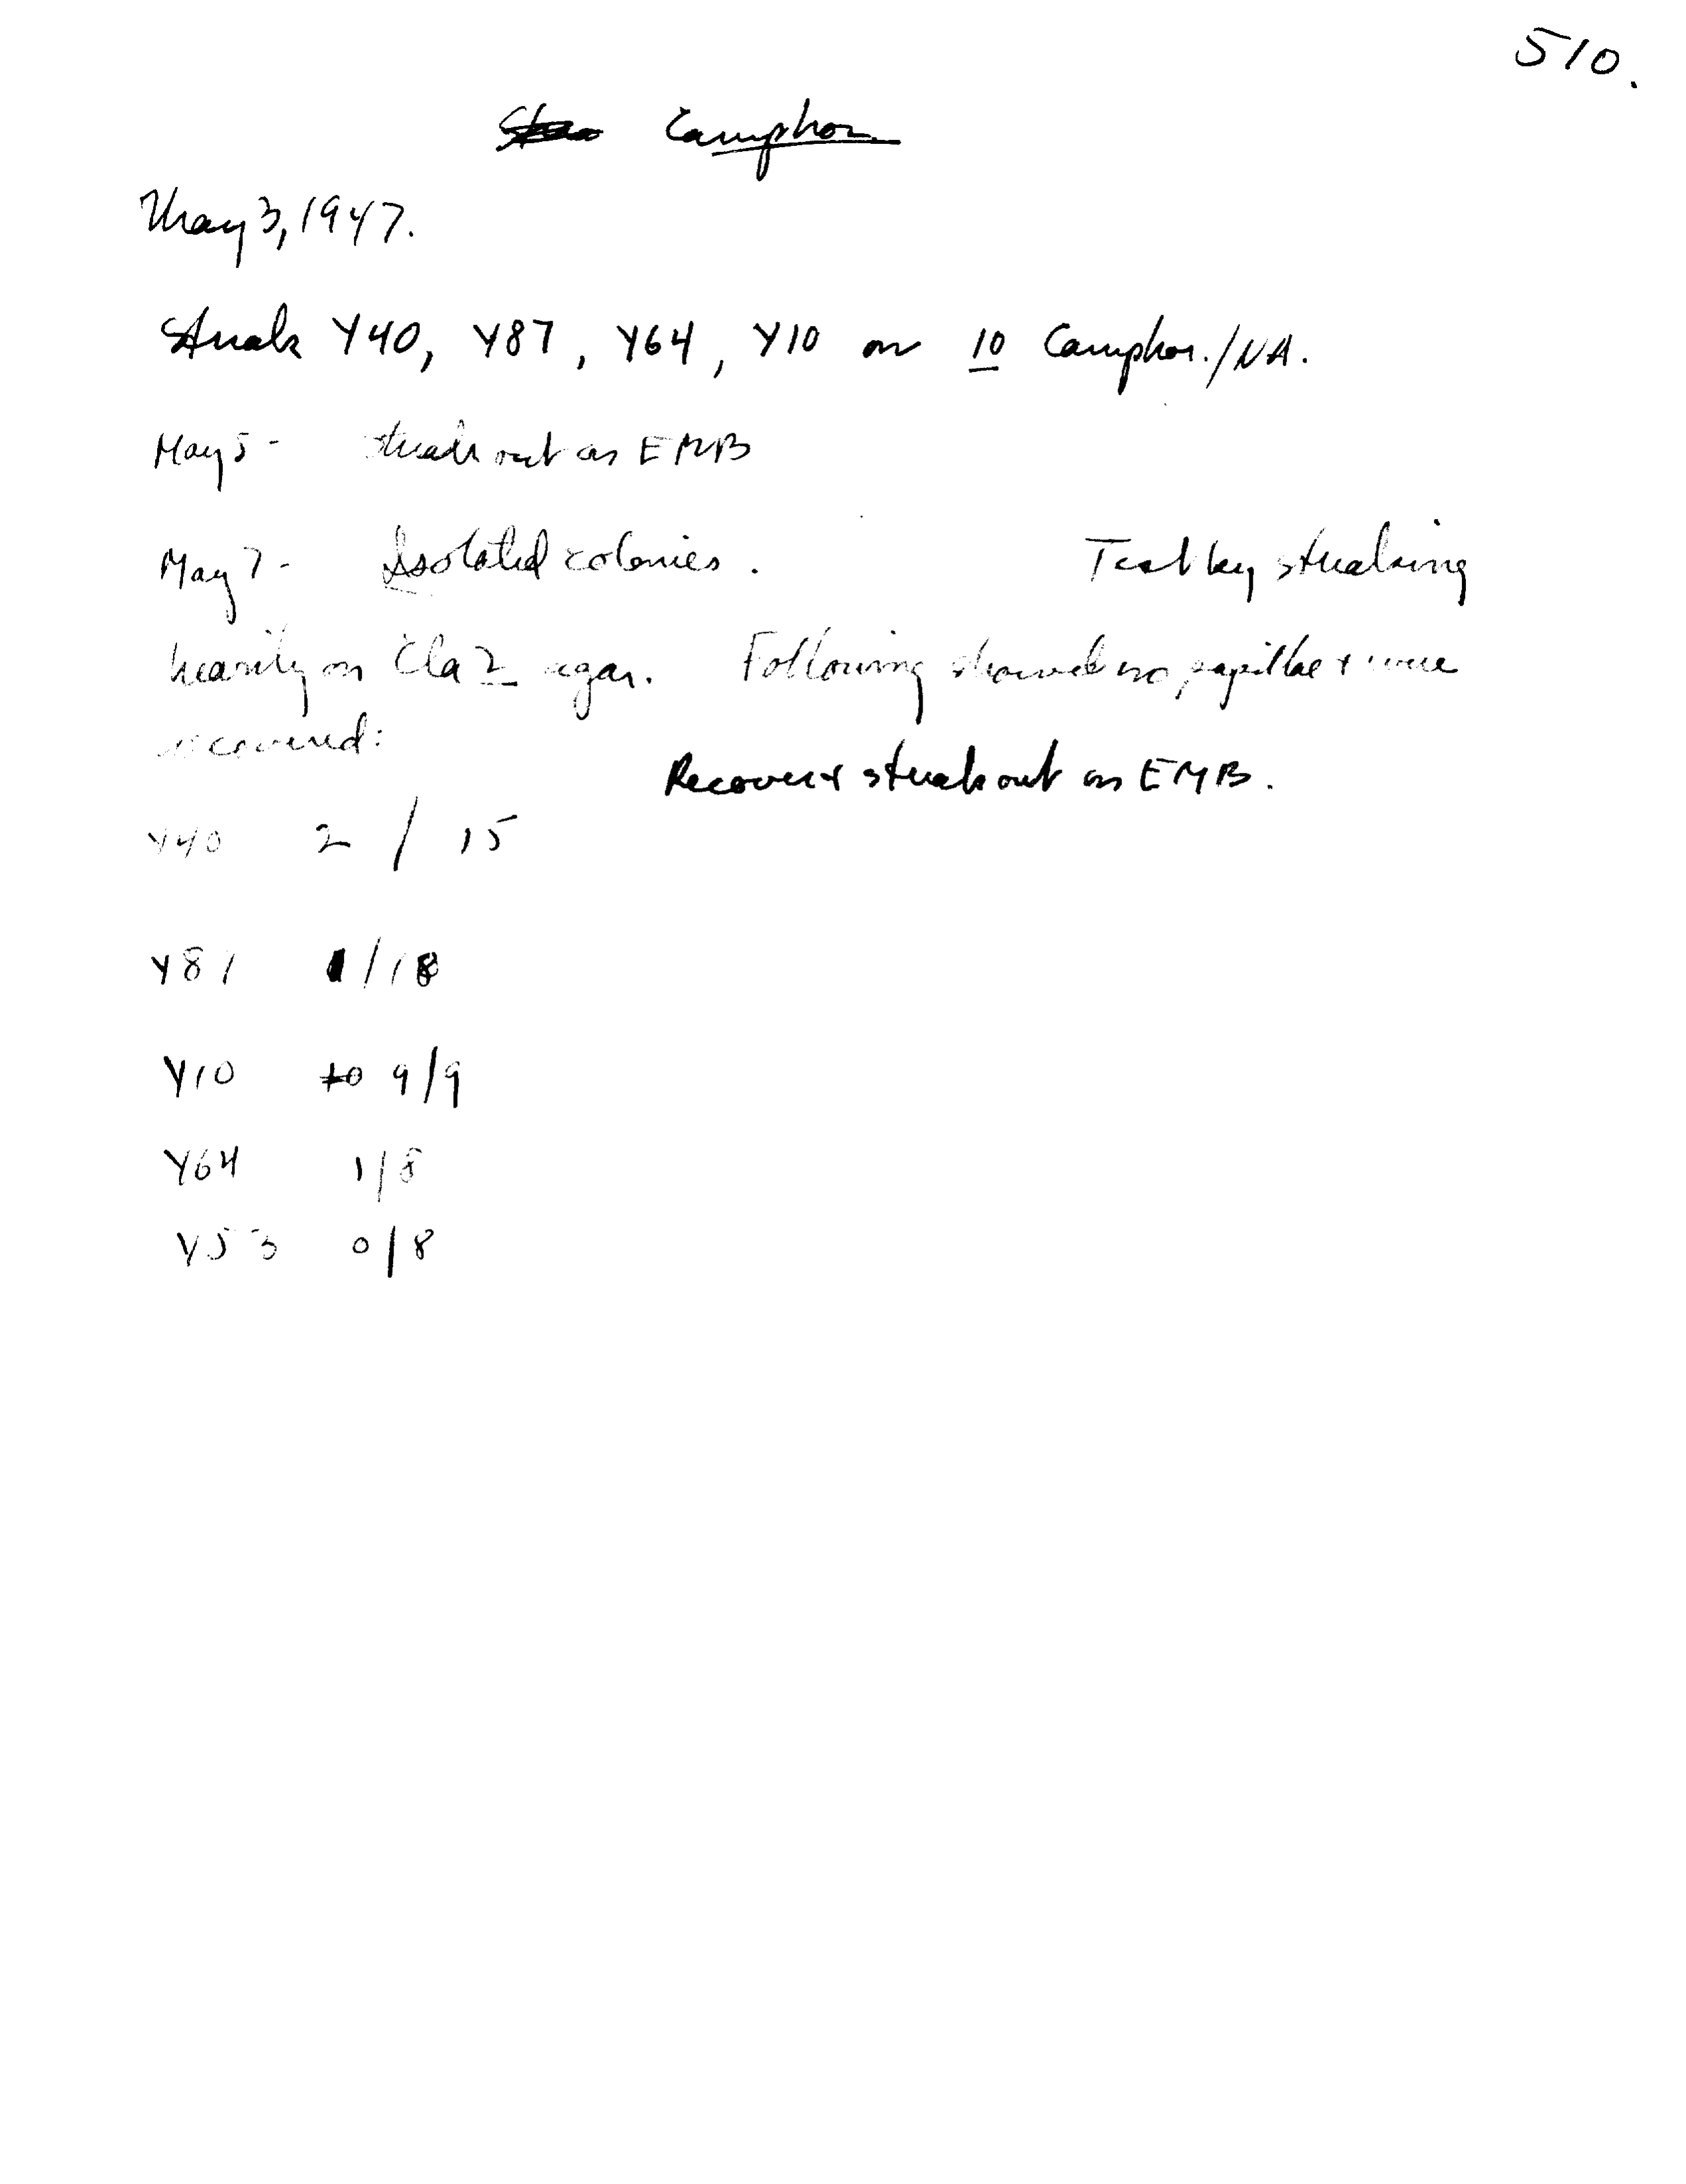 510.
Camphor
May 3, 1947.
Streak Y40, Y87, Y64, Y10 on 10 Camphor./NA.
May 5 - streak out on EMB
May 7 - Isolated colonies. Test by streaking
heavily on Cla 2 agar. Following showed no papillae + were
recovered:
Recover + streak out on EMB.
Y40 2 / 15
Y87 1/18
Y10 10 9/9
Y64 1/8
Y53 0/8